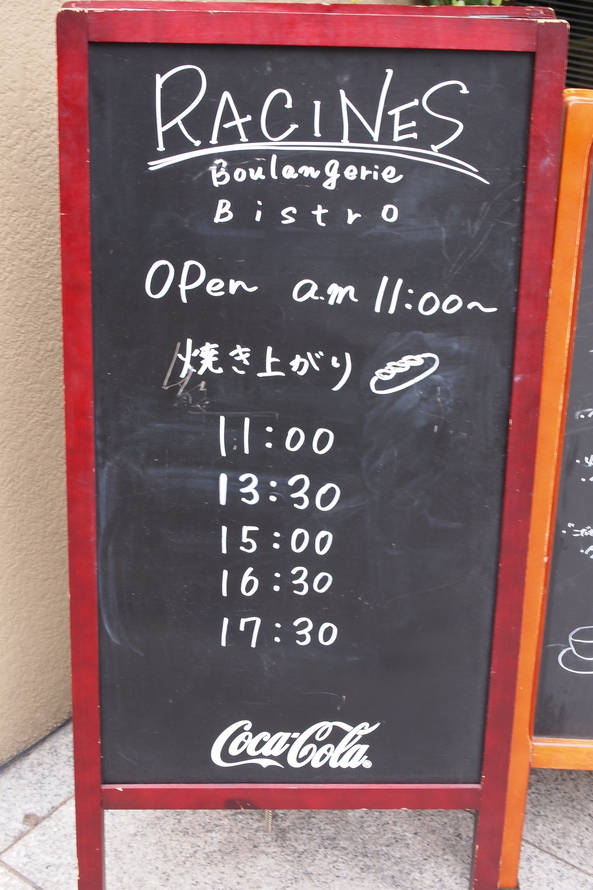 RACINES
Boulangerie
Bistro
OPen am 11:00~
焼き上がり
11:00
13:30
15:00
16:30
17:30
Coca-Cola